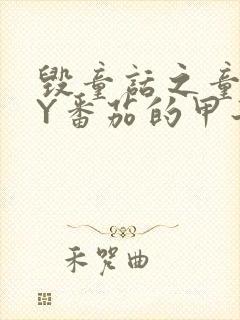 毁童话之童
Y番茄的甲
禾哭曲